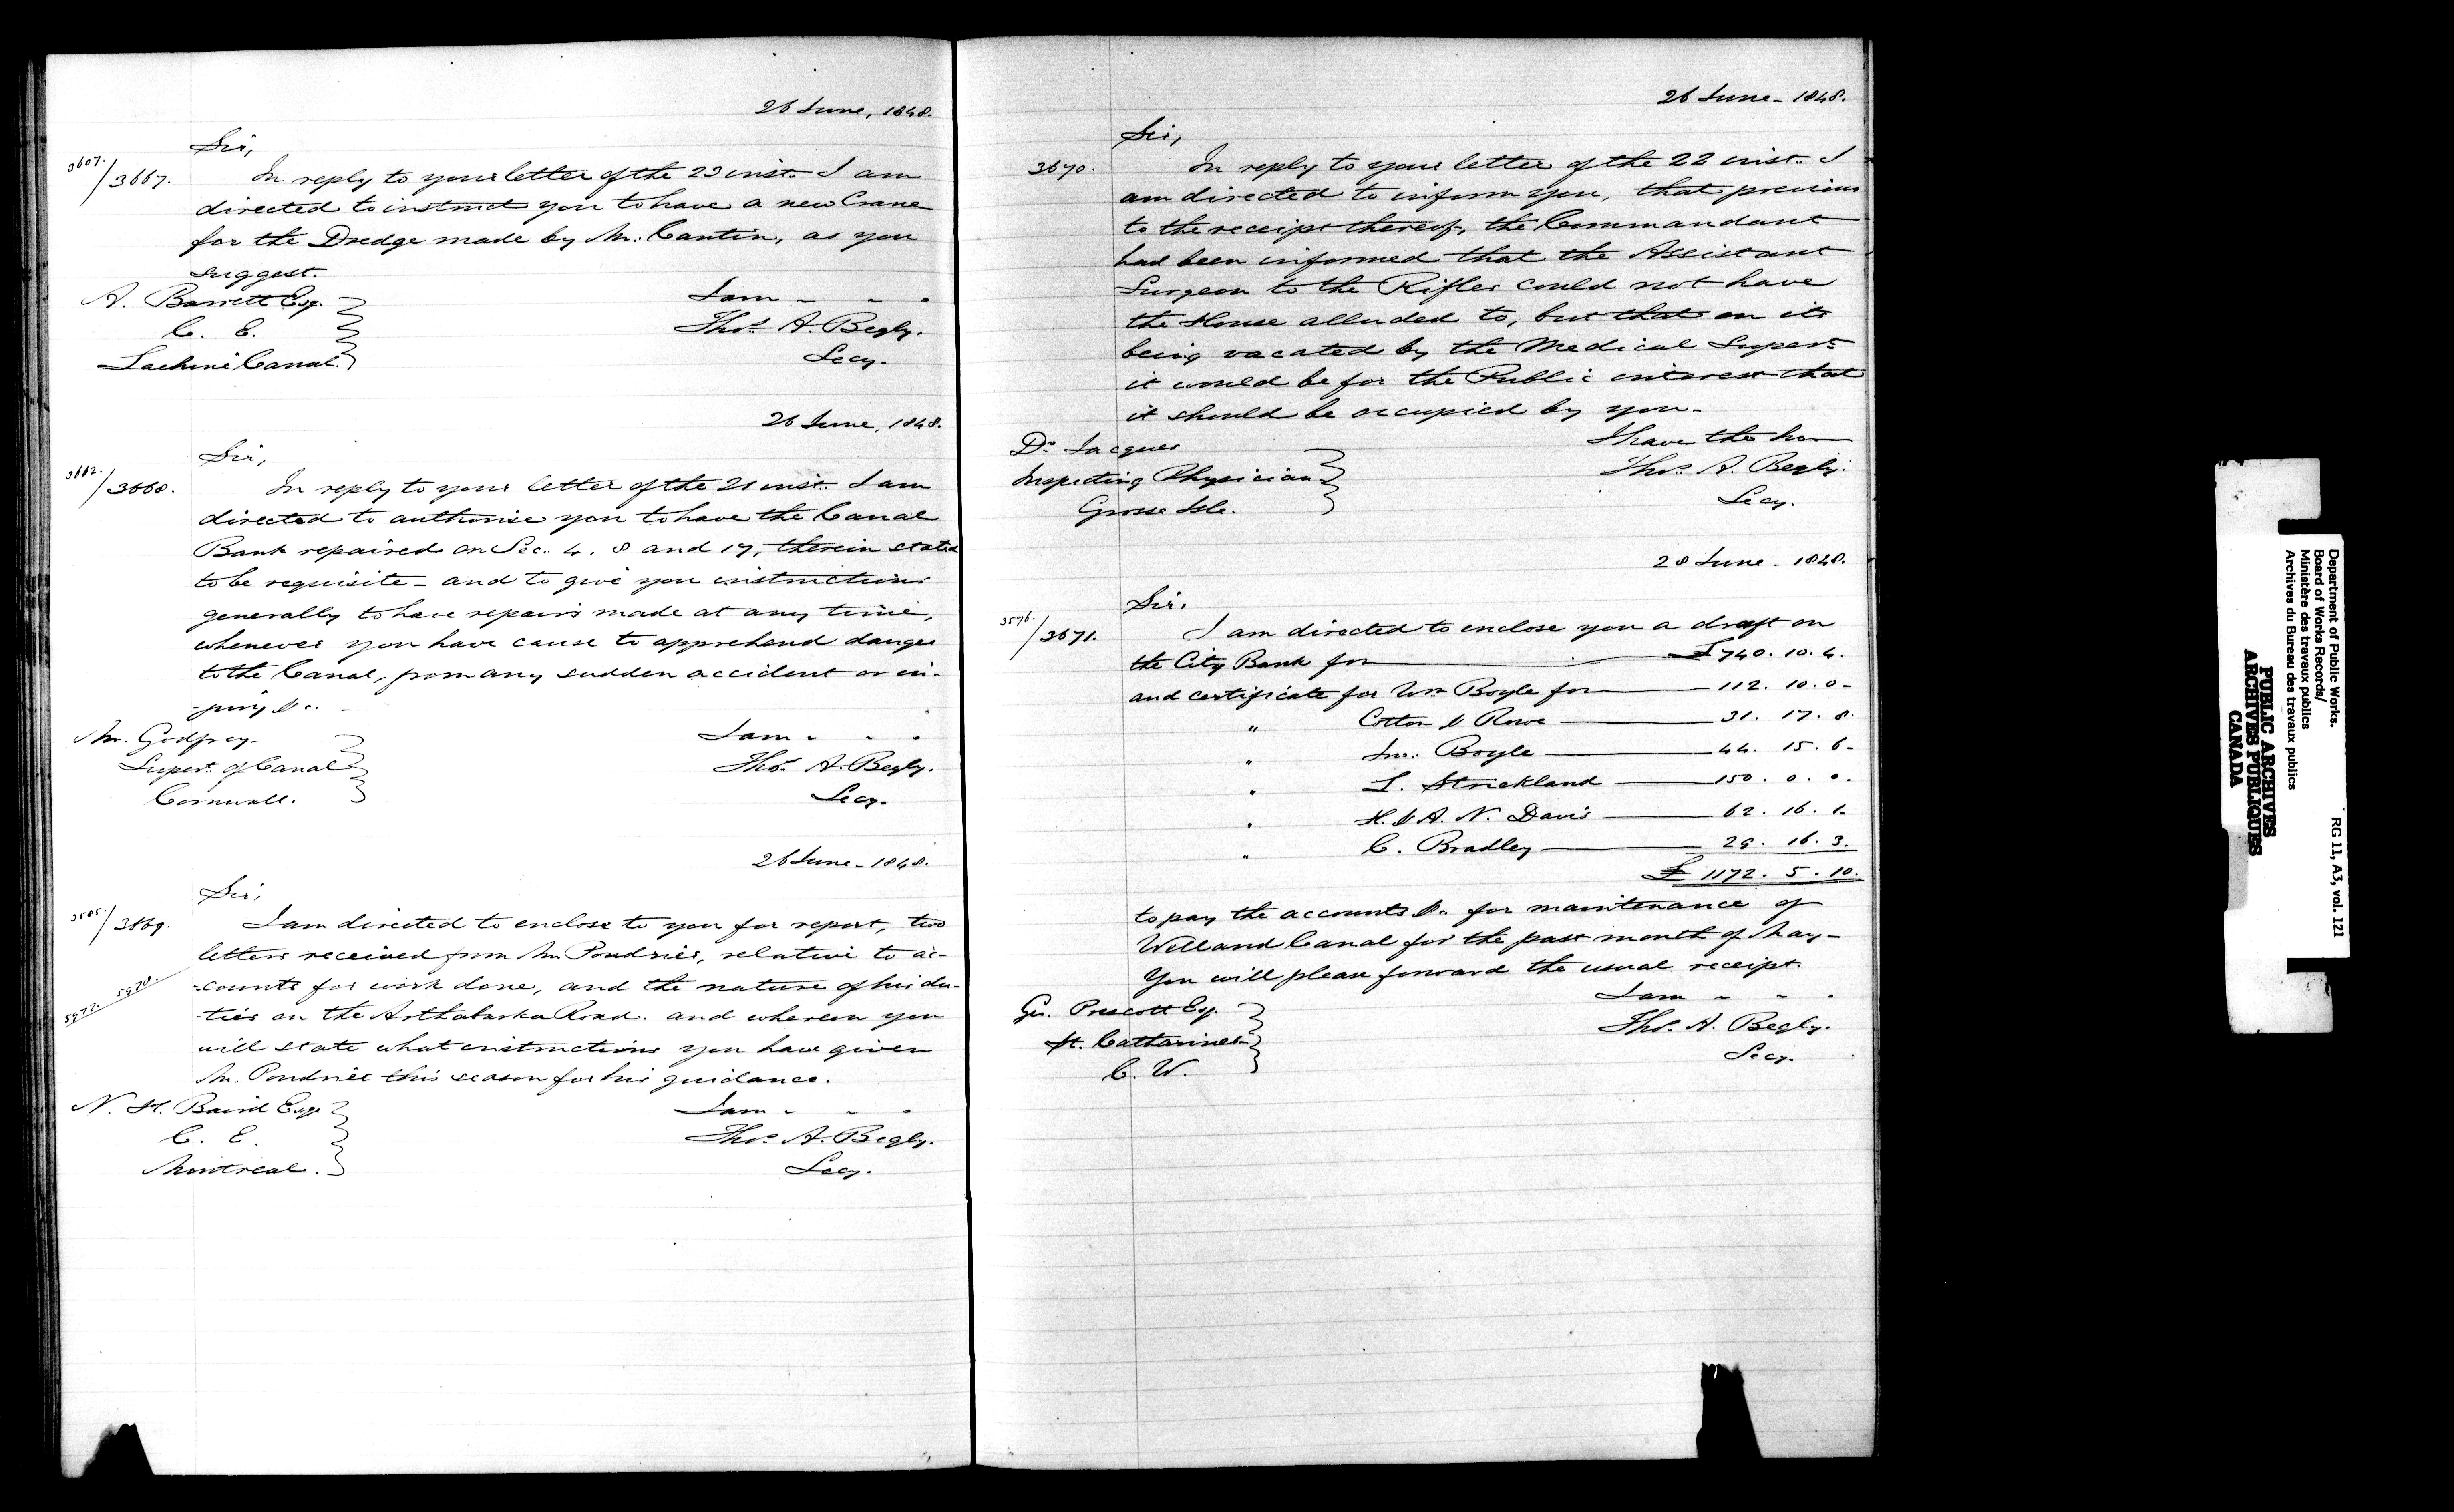 26 June, 1848.
Sir,
3607./3667. In reply to your letter of the 23 inst. I am
directed to instruct you to have a new Crane
for the Dredge made by Mr. Cantin, as you
suggest.
A. Barrett Esq.
C. E.
Lachine Canal.
I am " " "
Thos. A. Begly.
Secy.
26 June, 1848.
Sir,
3662./3668. In reply to your letter of the 21 inst. I am
directed to authorise you to have the Canal
Bank repaired on Sec. 4. 8 and 17, therein stated
to be requisite - and to give you instructions
generally to have repairs made at any time,
whenever you have cause to apprehend danger
to the Canal, from any sudden accident or in-
-jury &c. -
Mr. Godfrey.
Supert. of Canal
Cornwall.
I am " " "
Thos. A. Begly.
Secy.
26 June - 1848.
Sir,
3585./3669. I am directed to enclose to you for report, two
letters received from Mr. Poudrier, relative to ac-
5972. 5970. -counts for work done, and the nature of his du-
-ties on the Arthabaska Road. and whereon you
will state what instructions you have given
Mr. Poudrier this season for his guidance.
N. H. Baird Esqr.
C. E.
Montreal.
I am " " "
Thos. A. Begly.
Secy.
26 June - 1848.
Sir,
3670. In reply to your letter of the 22 inst. I
am directed to inform you, that previous
to the receipt thereof, the Commandant
had been informed that the Assistant
Surgeon to the Rifles could not have
the House alluded to, but that on its
being vacated by the Medical Supert.
it would be for the Public interest that
it should be occupied by you -
Dr. Jacques
Inspecting Physician
Grosse Isle.
I have the hon
Thos. A. Begly.
Secy.
28 June - 1848.
Sir.
3576./3671. I am directed to enclose you a draft on
the City Bank for £740. 10. 4.
and certificate for Wm Boyle for 112. 10. 0 -
" Cotton & Rowe 31. 17. 8.
" Jno. Boyle 44. 15. 6 -
" L. Strickland 150. 0. 0.
" H. & A. N. Davis 62. 16. 1.
" C. Bradley 29. 16. 3.
£ 1172. 5. 10.
to pay the accounts &c. for maintenance of
Welland Canal for the past month of May -
You will please forward the usual receipt.
Geo. Prescott Esq.
St. Catharines
C. W.
I am " " "
Thos. A. Begly.
Secy.
Department of Public Works.
Board of Works Records/
Ministère des travaux publics
Archives du Bureau des travaux publics
RG 11, A3, vol. 121
PUBLIC ARCHIVES
ARCHIVES PUBLIQUES
CANADA